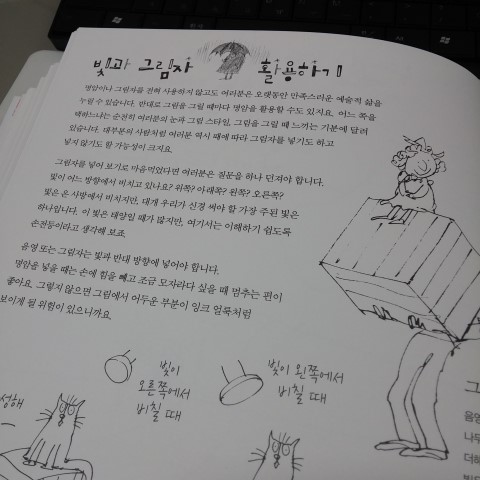 빛과 그림자 활용하기
명암이나 그림자를 전혀 사용하지 않고도 여러분은 오랫동안 만족스러운 예술적 삶을
누릴 수 있습니다. 반대로 그림을 그릴 때마다 명암을 활용할 수도 있지요. 어느 쪽을
택하느냐는 순전히 여러분의 눈과 그림 스타일, 그림을 그릴 때 느끼는 기분에 달려
있습니다. 대부분의 사람처럼 여러분 역시 때에 따라 그림자를 넣기도 하고
넣지 않기도 할 가능성이 크지요.
그림자를 넣어 보기로 마음먹었다면 여러분은 질문을 하나 던져야 합니다.
빛이 어느 방향에서 비치고 있나요? 위쪽? 아래쪽? 왼쪽? 오른쪽?
빛은 온 사방에서 비치지만, 대개 우리가 신경 써야 할 가장 주된 빛은
하나입니다. 이 빛은 태양일 때가 많지만, 여기서는 이해하기 쉽도록
손전등이라고 생각해 보죠.
음영 또는 그림자는 빛과 반대 방향에 넣어야 합니다.
명암을 넣을 때는 손에 힘을 빼고 조금 모자라다 싶을 때 멈추는 편이
좋아요. 그렇지 않으면 그림에서 어두운 부분이 잉크 얼룩처럼
보이게 될 위험이 있으니까요.
빛이
오른쪽에서
비칠 때
빛이 왼쪽에서
비칠 때
성해
그
음영
나무
더해